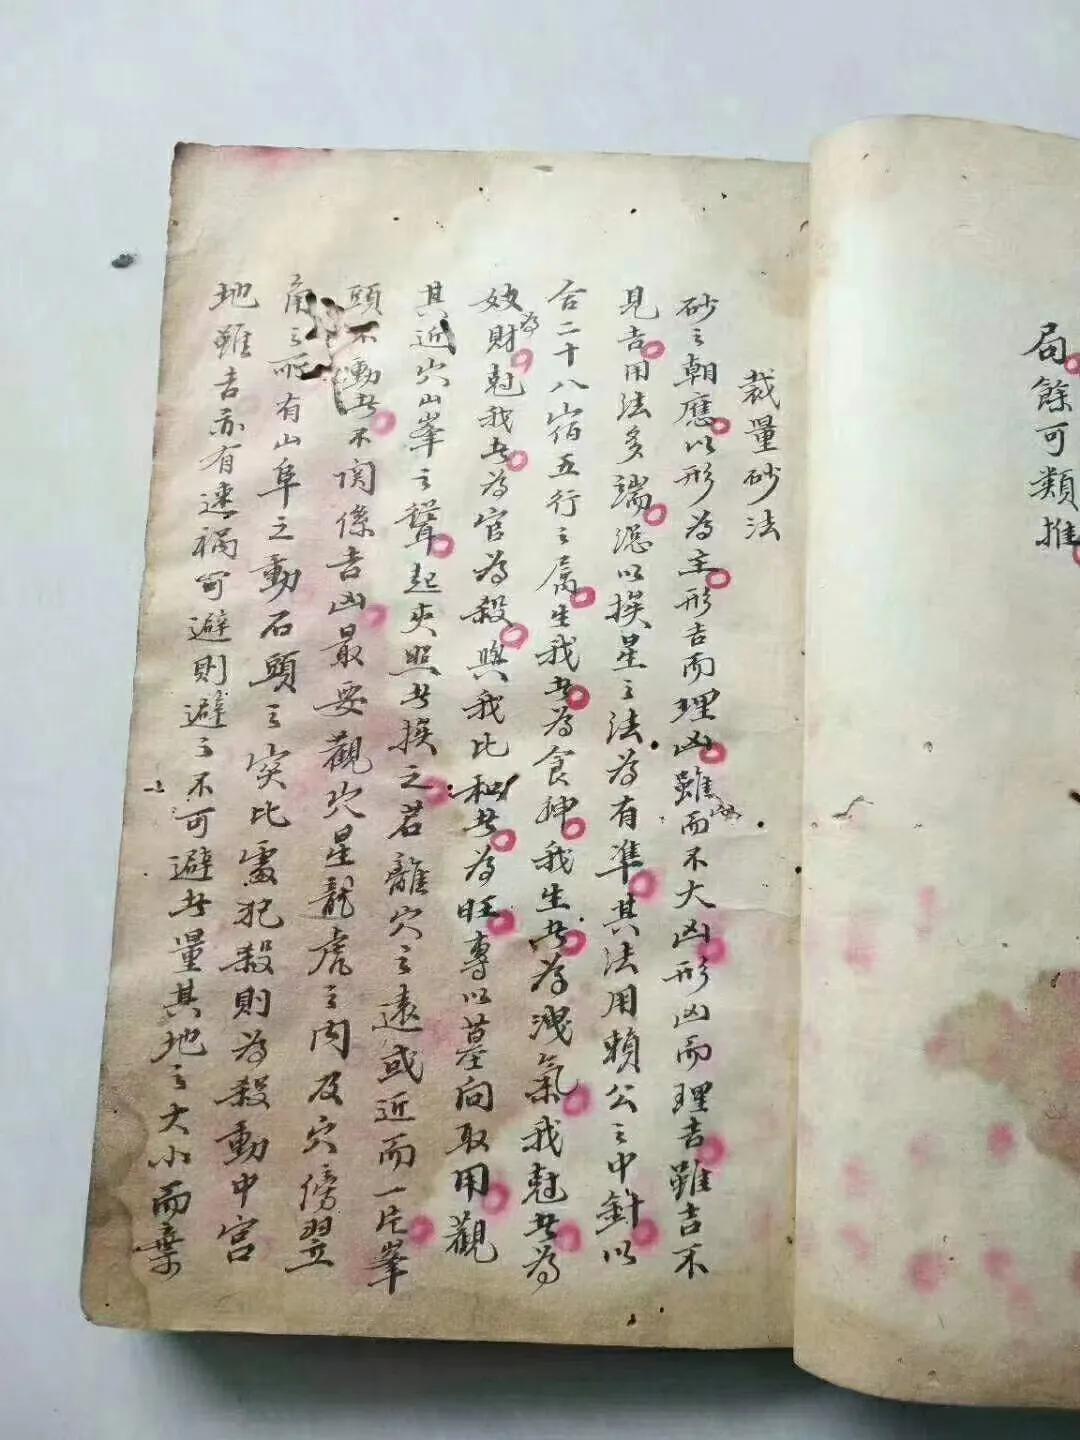 局餘可類推
裁量砂法
砂之朝應以形為主形吉而理凶雖凶而不大凶形凶而理吉雖吉不
見吉用法多端總以挨星之法為有準其法用賴公之中針以
合二十八宿五行之屬生我者為食神我生者為洩氣我尅者為
妓財尅我者為官為殺與我比和者為旺專以墓向取用觀
為
其近穴山峯之聳起夾照者挨之若離穴之遠或近而一片峯
頭不動者不関係吉凶最要觀穴星龍虎之内及穴傍翌
角之所有山阜之動石頭之突比處犯殺則為殺動中宫
地雖吉亦有速禍可避則避之不可避者量其地之大小而棄